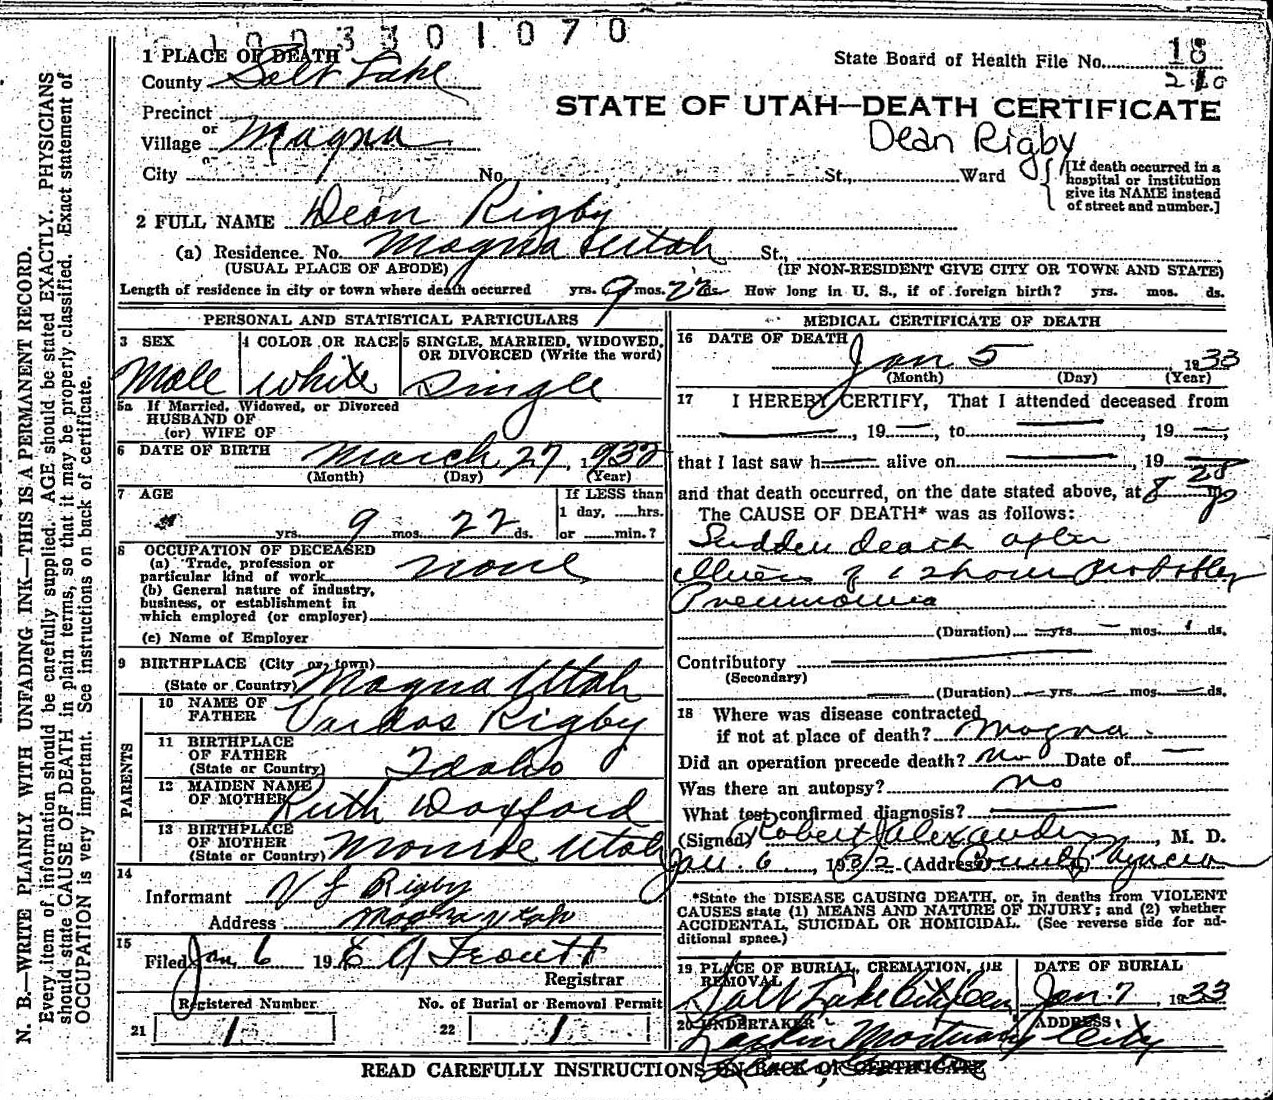 1003301070
1 PLACE OF DEATH
County Salt Lake
State Board of Health File No. 18
210
Precinct
or
Village Magna
STATE OF UTAH—DEATH CERTIFICATE
Dean Rigby
City No. St., Ward
[If death occurred in a
hospital or institution
give its NAME instead
of street and number.]
2 FULL NAME Dean Rigby
(a) Residence. No. Magna Utah St.,
(USUAL PLACE OF ABODE) (IF NON-RESIDENT GIVE CITY OR TOWN AND STATE)
Length of residence in city or town where death occurred yrs. 9 mos. 22 ds. How long in U. S., if of foreign birth? yrs. mos. ds.
PERSONAL AND STATISTICAL PARTICULARS
3 SEX 4 COLOR OR RACE 5 SINGLE, MARRIED, WIDOWED,
OR DIVORCED (Write the word)
Male White Single
5a If Married, Widowed, or Divorced
HUSBAND OF
(or) WIFE OF
6 DATE OF BIRTH March 27, 1932
(Month) (Day) (Year)
7 AGE If LESS than
1 day, ......hrs.
yrs. 9 mos. 22 ds. or ......min.?
8 OCCUPATION OF DECEASED
(a) Trade, profession or
particular kind of work none
(b) General nature of industry,
business, or establishment in
which employed (or employer)
(c) Name of Employer
9 BIRTHPLACE (City or town)
(State or Country) Magna Utah
PARENTS
10 NAME OF
FATHER Vardas Rigby
11 BIRTHPLACE
OF FATHER
(State or Country) Idaho
12 MAIDEN NAME
OF MOTHER Ruth Doxford
13 BIRTHPLACE
OF MOTHER
(State or Country) Monroe Utah
14
Informant V L Rigby
Address Magna Utah
15
Filed Jan. 6 19 E A Troutt
Registrar
Registered Number. No. of Burial or Removal Permit
21 1 22 1
MEDICAL CERTIFICATE OF DEATH
16 DATE OF DEATH
Jan 5 1933
(Month) (Day) (Year)
17 I HEREBY CERTIFY, That I attended deceased from
, 19 — , to — , 19 — ,
that I last saw h— alive on — , 19 —
and that death occurred, on the date stated above, at 8 28 p m
The CAUSE OF DEATH* was as follows:
Sudden death after
illness of 12 hours Probably
Pneumonia
(Duration) — yrs. — mos. 1 ds.
Contributory
(Secondary)
— (Duration) — yrs. — mos. — ds.
18 Where was disease contracted
if not at place of death? Magna.
Did an operation precede death? No Date of —
Was there an autopsy? no
What test confirmed diagnosis? —
(Signed) Robert J Alexander, M. D.
Jan. 6, 1932 (Address) County Physician
*State the DISEASE CAUSING DEATH, or, in deaths from VIOLENT
CAUSES state (1) MEANS AND NATURE OF INJURY; and (2) whether
ACCIDENTAL, SUICIDAL OR HOMICIDAL. (See reverse side for ad-
ditional space.)
19 PLACE OF BURIAL, CREMATION, OR
REMOVAL DATE OF BURIAL
Salt Lake City Cem Jan. 7, 1933
20 UNDERTAKER ADDRESS
Larkin Mortuary City
READ CAREFULLY INSTRUCTIONS ON BACK OF CERTIFICATE
N. B.—WRITE PLAINLY WITH UNFADING INK—THIS IS A PERMANENT RECORD.
Every item of information should be carefully supplied. AGE should be stated EXACTLY. PHYSICIANS
should state CAUSE OF DEATH in plain terms, so that it may be properly classified. Exact statement of
OCCUPATION is very important. See instructions on back of certificate.